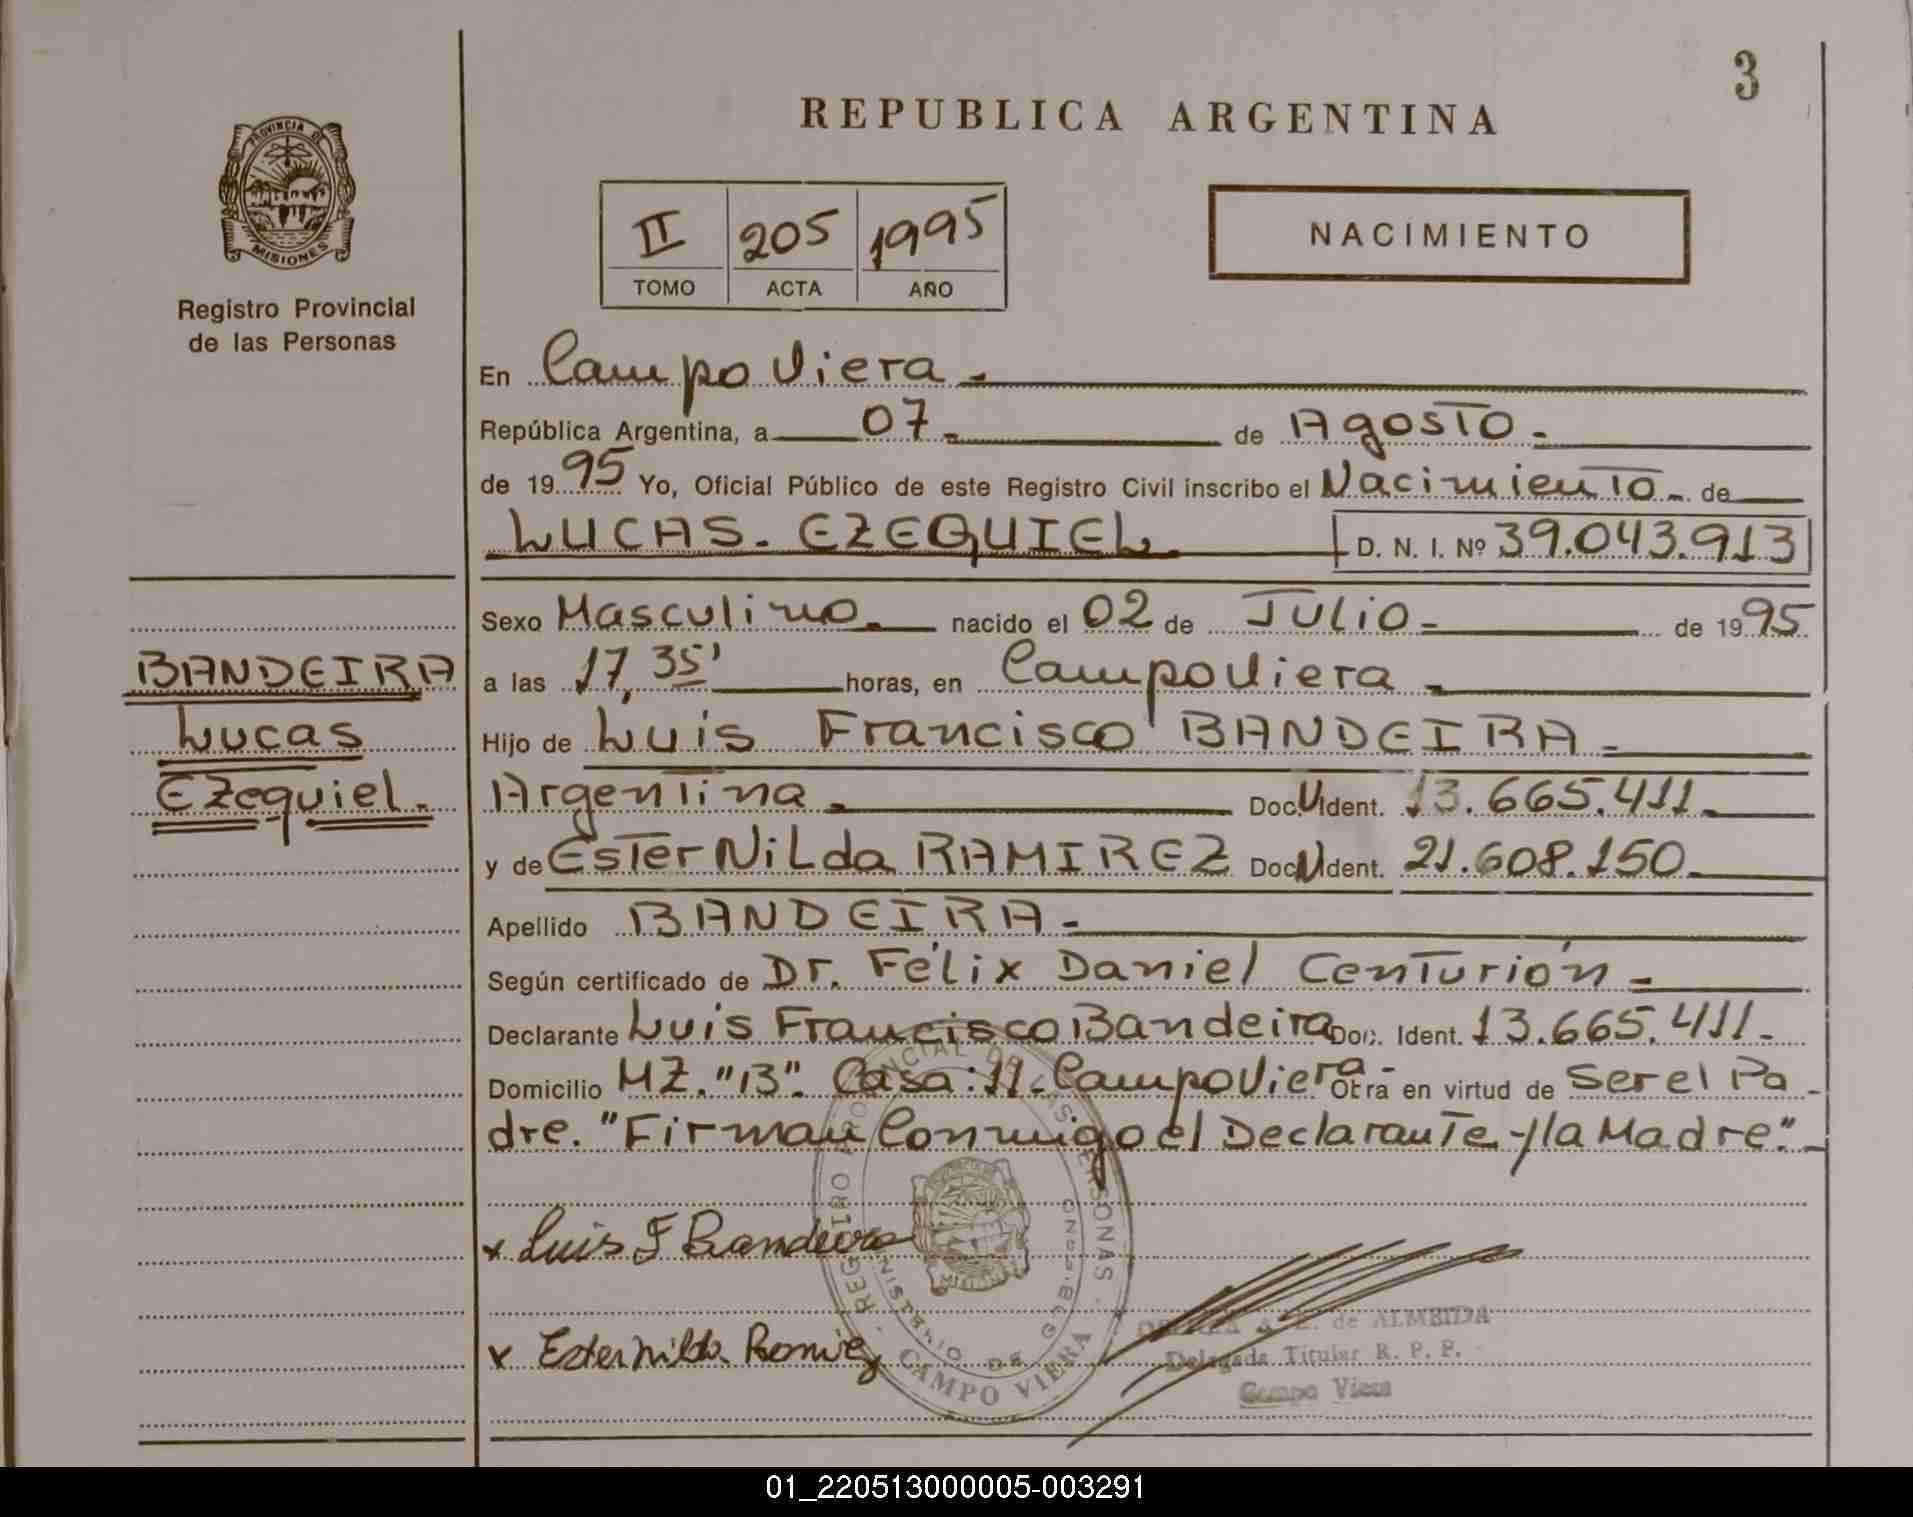 3
REPUBLICA ARGENTINA
PROVINCIA DE
MISIONES
Registro Provincial
de las Personas
II 205 1995
TOMO ACTA AÑO
NACIMIENTO
En Campo Viera.-
República Argentina, a 07.- de Agosto.-
de 1995 Yo, Oficial Público de este Registro Civil inscribo el Nacimiento.- de
LUCAS. EZEQUIEL. D. N. I. Nº 39.043.913
Sexo Masculino. nacido el 02 de Julio.- de 1995
BANDEIRA
Lucas
Ezequiel.
a las 17,35' horas, en Campo Viera.-
Hijo de Luis Francisco BANDEIRA.-
Argentina.- Doc. U Ident. 13.665.411.-
y de Ester Nilda RAMIREZ Doc. U Ident. 21.608.150.-
Apellido BANDEIRA.-
Según certificado de Dr. Félix Daniel Centurión.-
Declarante Luis Francisco Bandeira Doc. Ident. 13.665.411.-
Domicilio MZ. "13". Casa: 11.- Campo Viera.- Obra en virtud de Ser el Pa-
dre. "Firman Conmigo el Declarante y la Madre".-
x Luis F Bandeira
x Ester Nilda Ramirez
REGISTRO PROVINCIAL DE LAS PERSONAS
MINISTERIO DE GOBIERNO
CAMPO VIERA
de ALMEIDA
Delegada Titular R. P. P.
Campo Viera
01_220513000005-003291